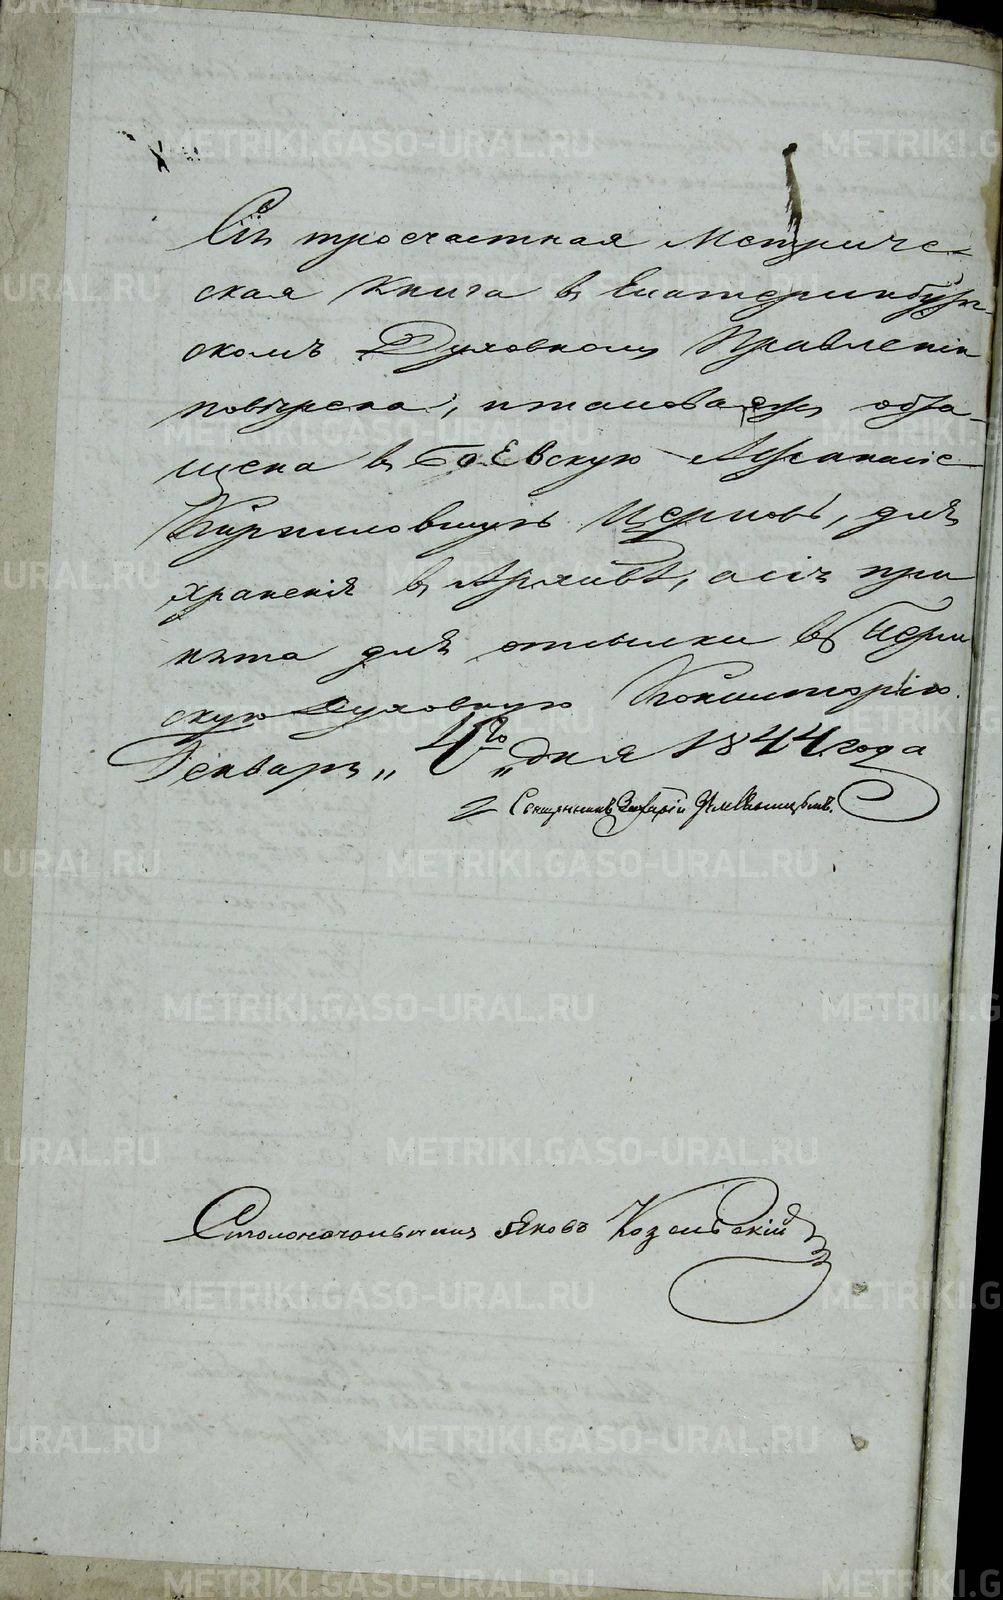 Сія тросчастная Метриче-
ская Книга въ Екатеринбург-
скомъ Духовномъ Правленіи
повѣрена, и таковая обра-
щена въ Боевскую Афанасіе-
Кирилловскую Церковь, для
храненія въ Архивѣ, а сія при
нята для отсылки въ Перм
скую Духовную Консисторію.
Генваря „ 4го „ дня 1844 года
Священникъ Захарій
Столоначальникъ Яковъ Козельскій
METRIKI.GASO-URAL.RU